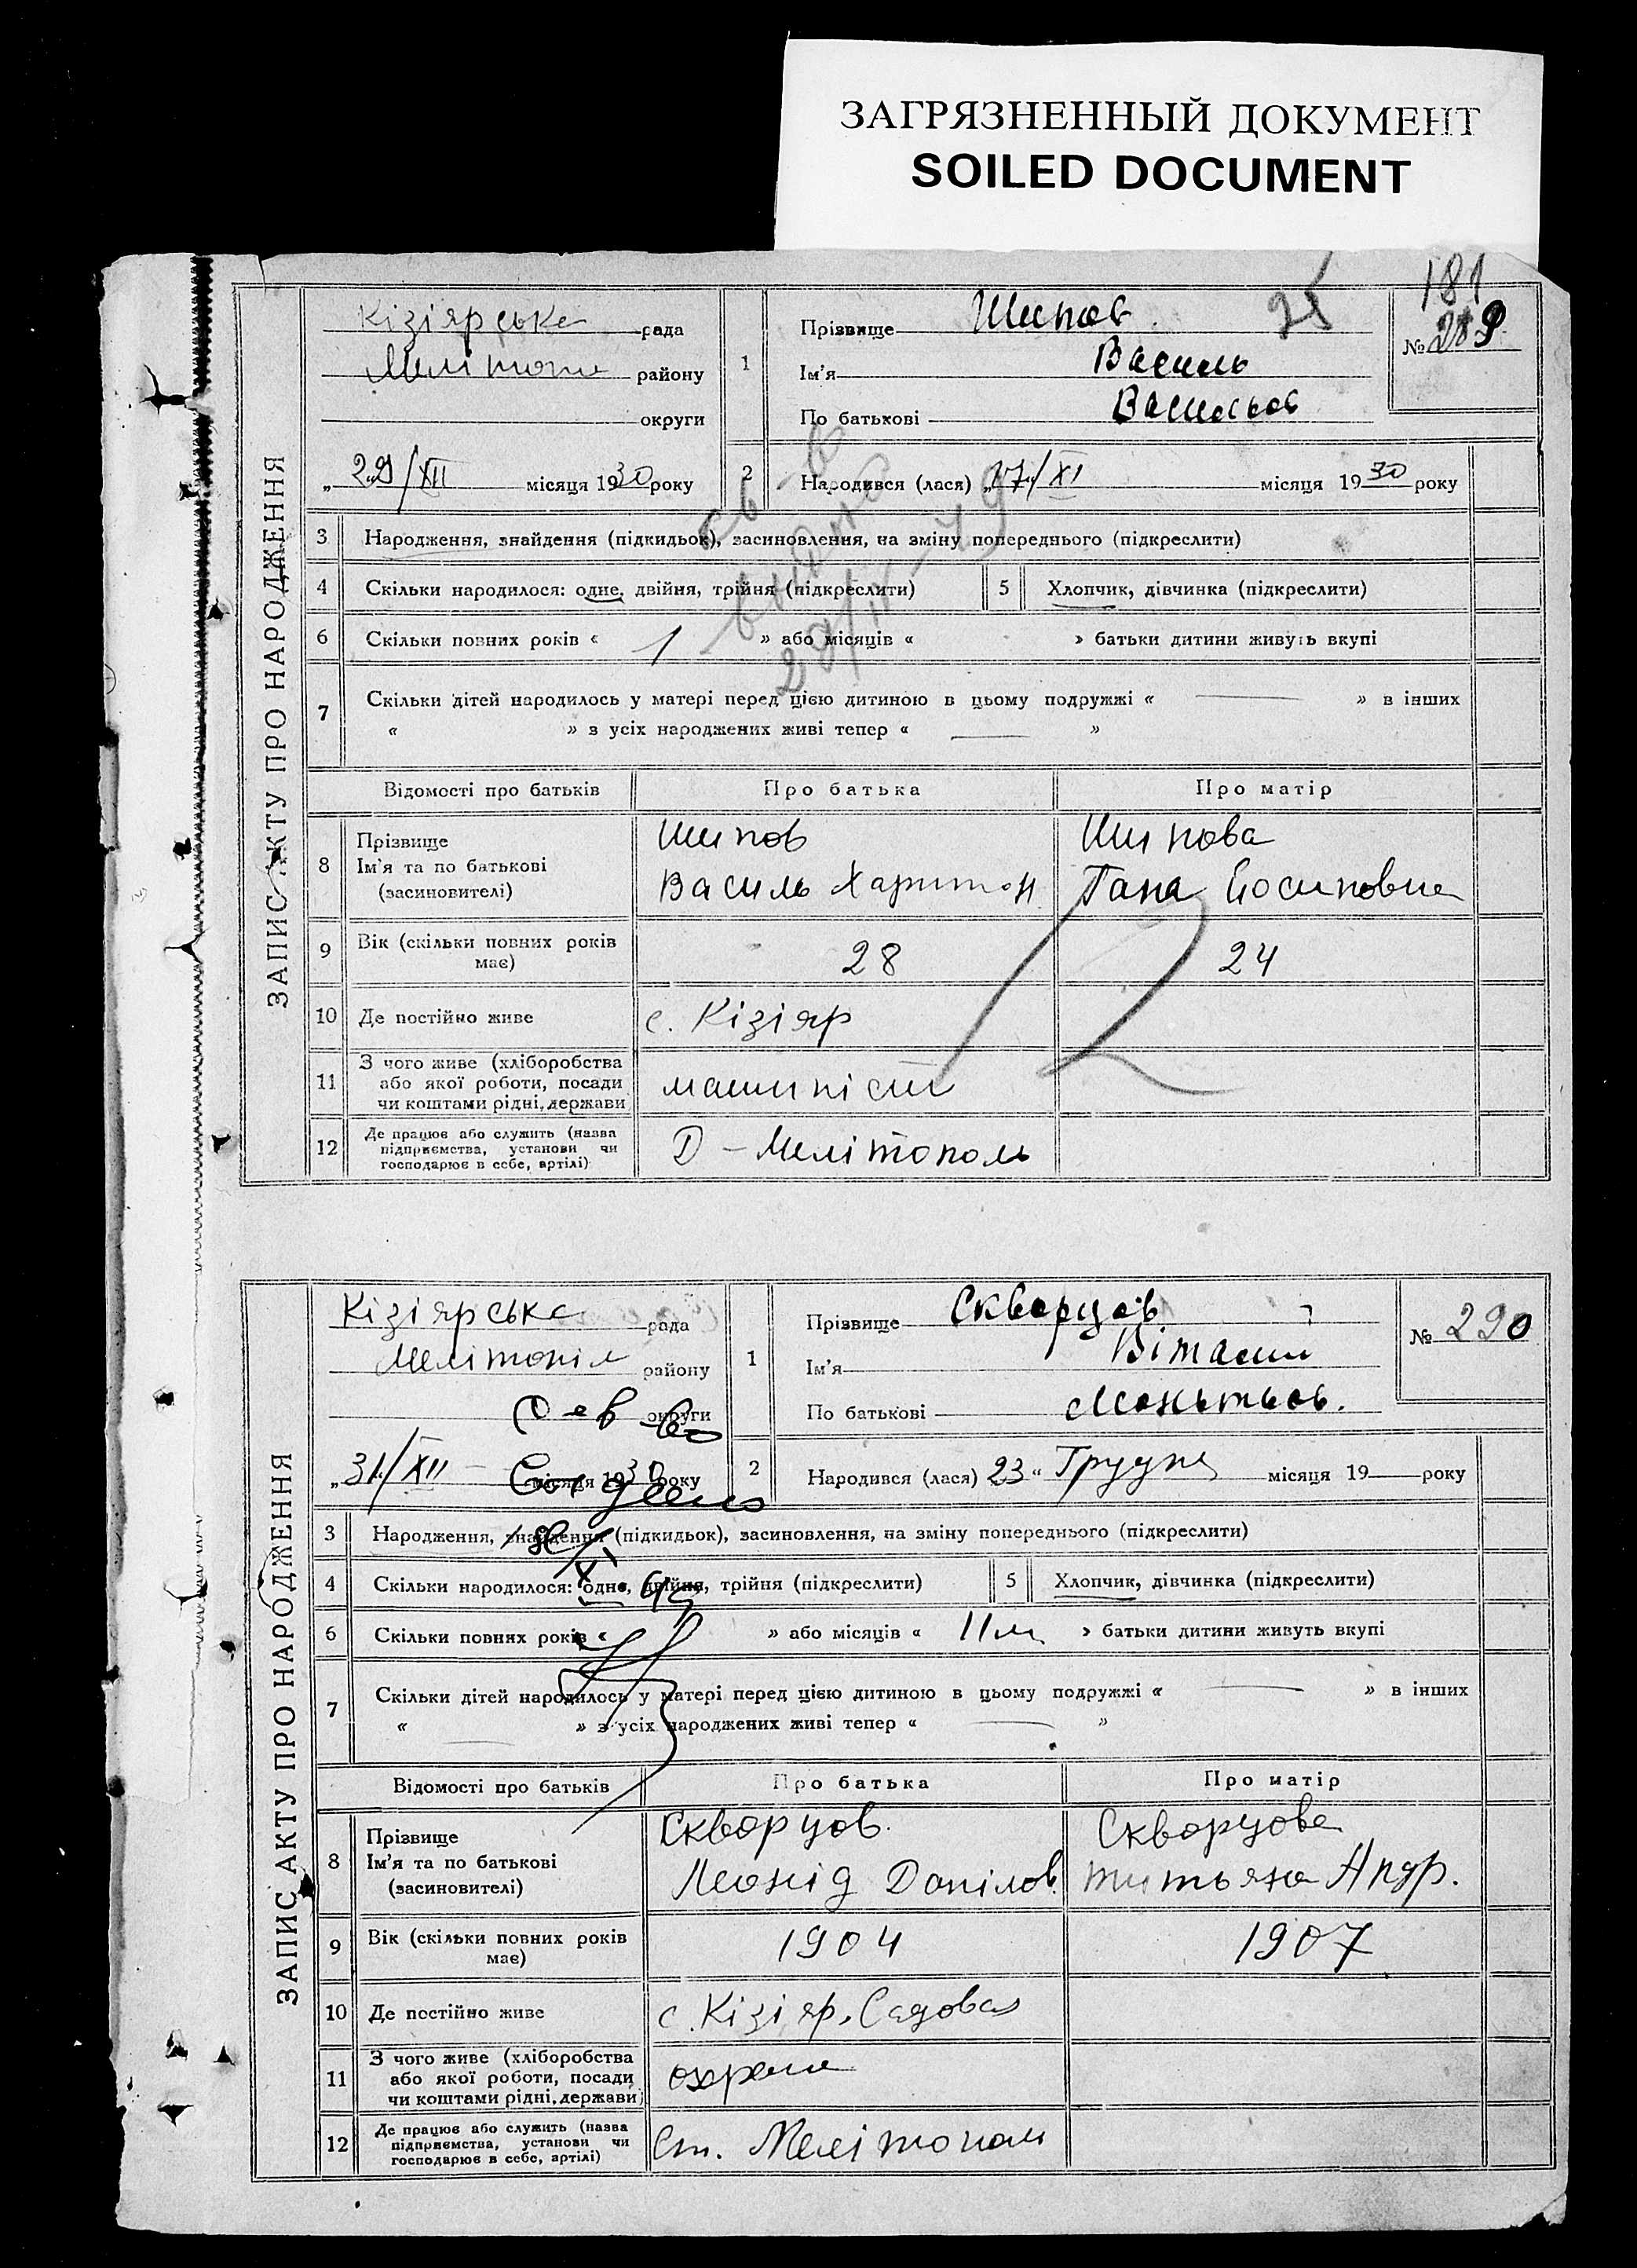 ЗАГРЯЗНЕННЫЙ ДОКУМЕНТ
SOILED DOCUMENT
181
25
ЗАПИС АКТУ ПРО НАРОДЖЕННЯ
Кізіярське рада
Мелітопи району
округи
„29/XII місяця 1930 року
1
Прізвище Шипов
Ім'я Василь
По батькові Васильов
№ 289
2 Народився (лася) „17„/XI місяця 1930 року
3 Народження, знайдення (підкидьок), засиновлення, на зміну попереднього (підкреслити)
4 Скільки народилося: одне, двійня, трійня (підкреслити) 5 Хлопчик, дівчинка (підкреслити)
6 Скільки повних років « 1 » або місяців « » батьки дитини живуть вкупі
7 Скільки дітей народилось у матері перед цією дитиною в цьому подружжі « — » в інших
« » з усіх народжених живі тепер « — »
Відомості про батьків Про батька Про матір
8 Прізвище Шипов Шипова
Ім'я та по батькові Василь Харитон Гана Йосиповна
(засиновителі)
9 Вік (скільки повних років має) 28 24
10 Де постійно живе с. Кізіяр
11 З чого живе (хліборобства або якої роботи, посади чи коштами рідні, держави машиніст
12 Де працює або служить (назва підприємства, установи чи господарює в себе, артілі) Д – Мелітополь
ЗАПИС АКТУ ПРО НАРОДЖЕННЯ
Кізіярське рада
Мелітопіл району
округи
„31/XII місяця 1930 року
1
Прізвище Скворцов
Ім'я Віталий
По батькові
№ 290
2 Народився (лася) 23 „ Грудня місяця 19 року
3 Народження, знайдення (підкидьок), засиновлення, на зміну попереднього (підкреслити)
4 Скільки народилося: одне, двійня, трійня (підкреслити) 5 Хлопчик, дівчинка (підкреслити)
6 Скільки повних років « » або місяців « 11 м » батьки дитини живуть вкупі
7 Скільки дітей народилось у матері перед цією дитиною в цьому подружжі « — » в інших
« — » з усіх народжених живі тепер « — »
Відомості про батьків Про батька Про матір
8 Прізвище Скворцов. Скворцова
Ім'я та по батькові Леонід Данілов. Титьяна Андр.
(засиновителі)
9 Вік (скільки повних років має) 1904 1907
10 Де постійно живе с. Кізіяр. Садовая
11 З чого живе (хліборобства або якої роботи, посади чи коштами рідні, держави) охрана
12 Де працює або служить (назва підприємства, установи чи господарює в себе, артілі) Ст. Мелітополь